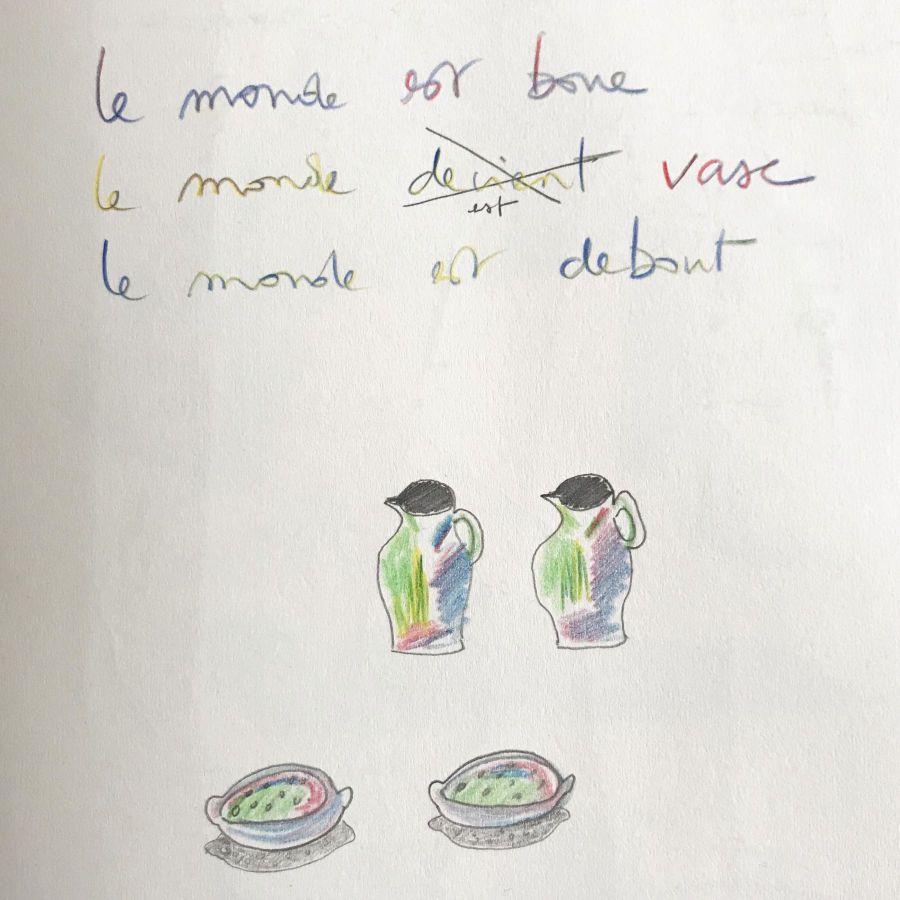 le monde est boue
le monde devient vase
est
le monde est debout